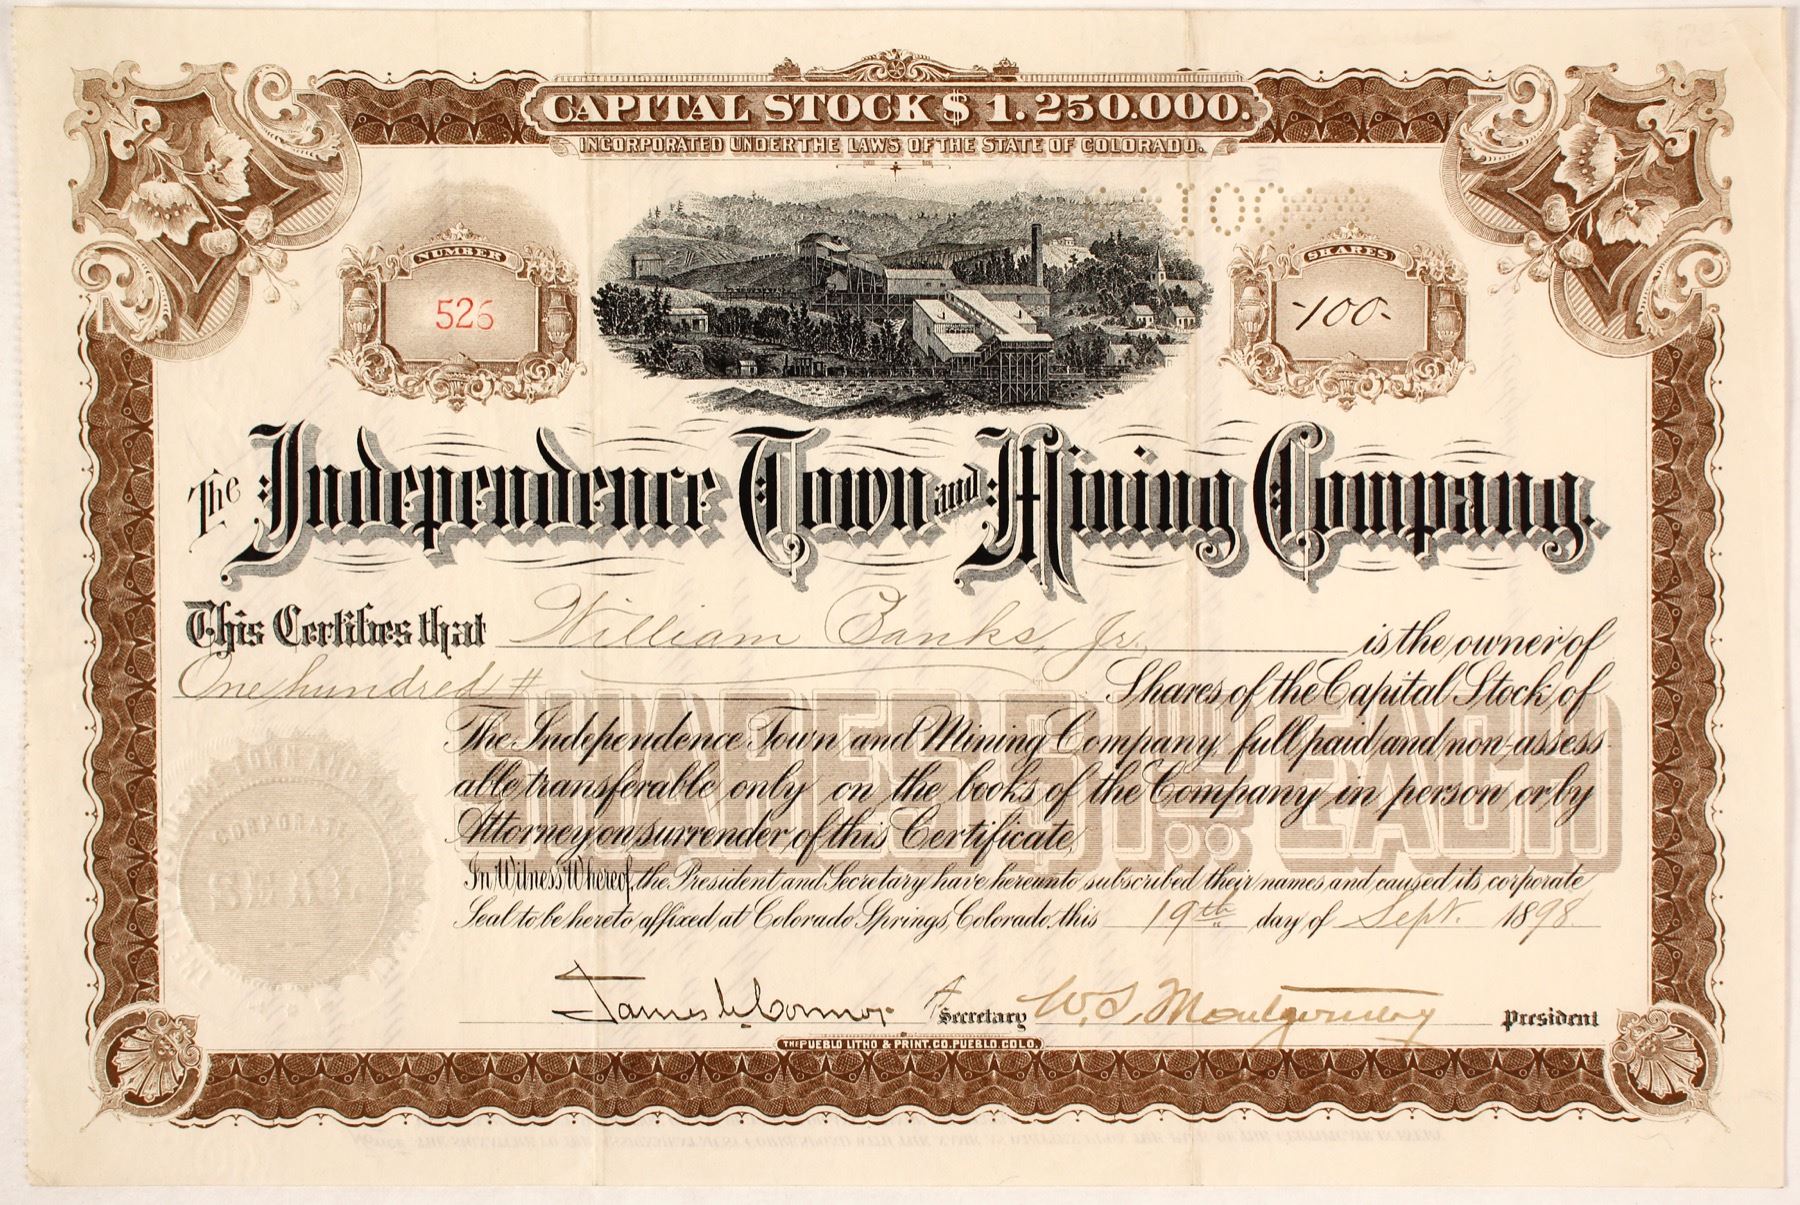 CAPITAL STOCK $ 1.250.000.
INCORPORATED UNDER THE LAWS OF THE STATE OF COLORADO.
100
NUMBER
526
SHARES
-100-
The Independence Town and Mining Company.
This Certifies that William Banks, Jr., is the owner of
One hundred # Shares of the Capital Stock of
The Independence Town and Mining Company full paid and non-assess-
able transferable only on the books of the Company in person or by
Attorney on surrender of this Certificate.
SHARES $1.00 EACH
In Witness Whereof, the President and Secretary have hereunto subscribed their names and caused its corporate
Seal to be hereto affixed at Colorado Springs, Colorado this 19th day of Sept. 1898.
CORPORATE
SEAL
James Secretary W. S. Montgomery President
THE PUEBLO LITHO & PRINT. CO. PUEBLO. COLO.